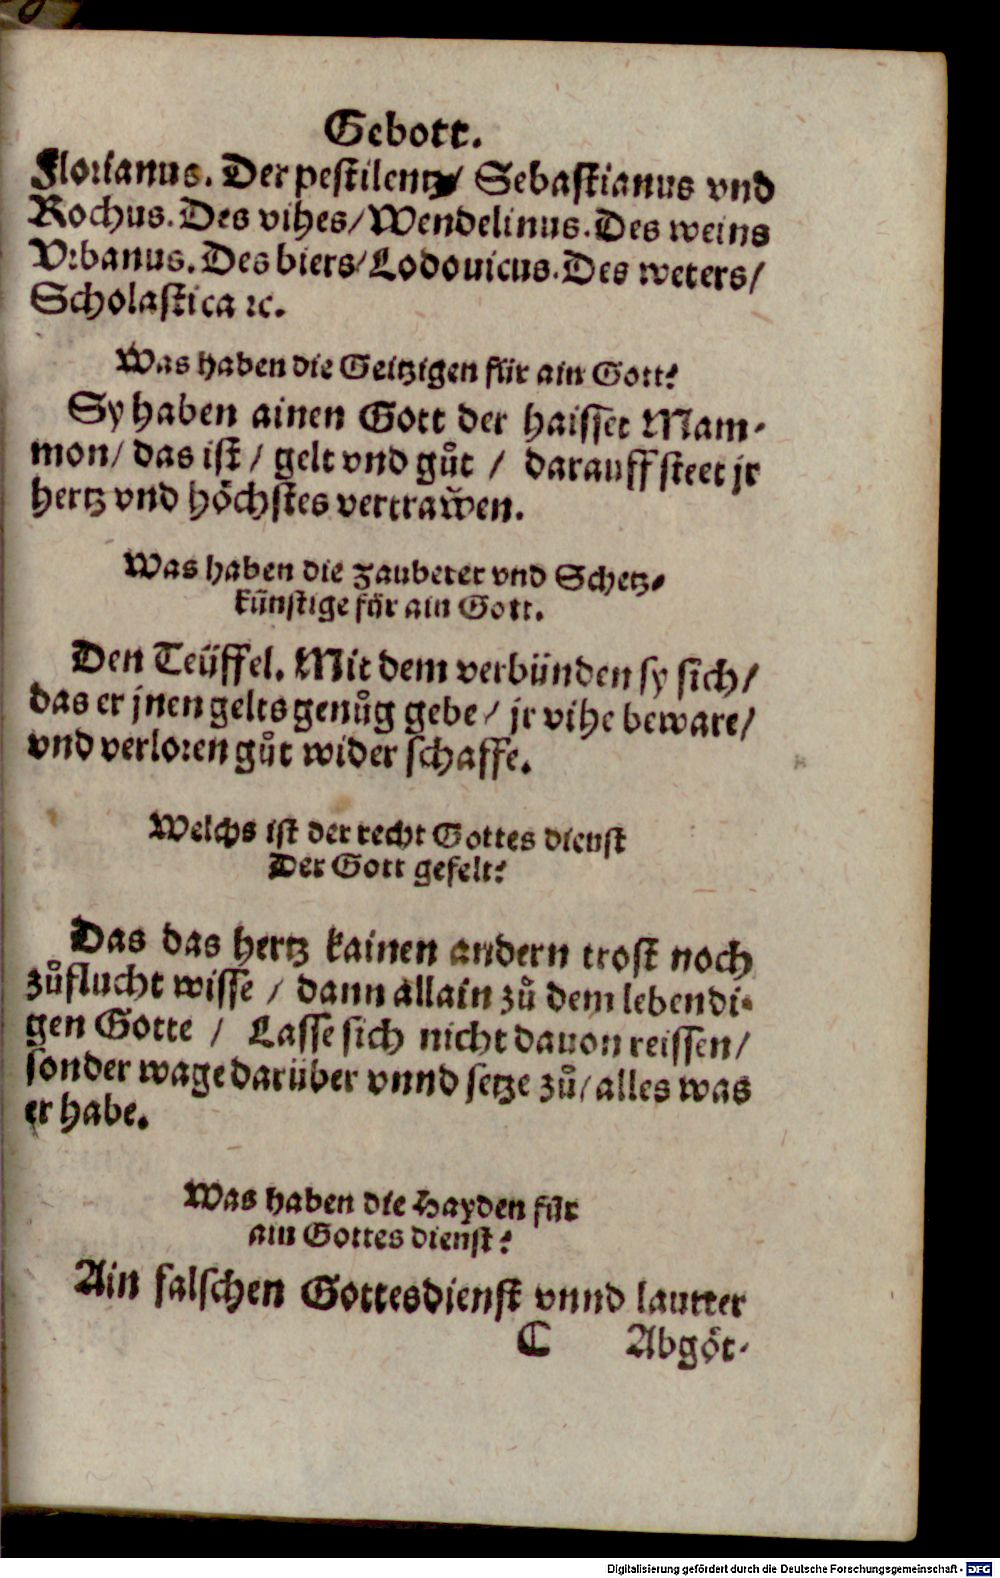 Gebott.
Florianus. Der pestilentz/ Sebastianus vnd
Rochus. Des vihes/ Wendelinus. Des weins
Vrbanus. Des biers/ Lodouicus. Des weters/
Scholastica ꝛc.
Was haben die Geitzigen für ain Gott?
Sy haben ainen Gott der haisset Mam-
mon/ das ist/ gelt vnd gůt / darauff steet jr
hertz vnd höchstes vertraẅen.
Was haben die zauberer vnd Schetz-
künstige für ain Gott.
Den Teüffel. Mit dem verbünden sy sich/
das er jnen gelts genůg gebe/ jr vihe beware/
vnd verloren gůt wider schaffe.
Welchs ist der recht Gottes dienst
Der Gott gefelt?
Das das hertz kainen andern trost noch
zůflucht wisse / dann allain zů dem lebendi-
gen Gotte / Lasse sich nicht dauon reissen/
sonder wage darüber vnnd setze zů/ alles was
er habe.
Was haben die Hayden für
ain Gottes dienst?
Ain falschen Gottesdienst vnnd lautter
C Abgöt-
Digitalisierung gefördert durch die Deutsche Forschungsgemeinschaft - DFG